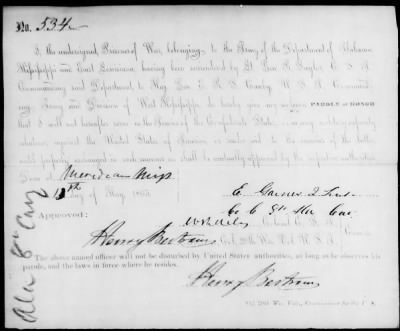 No. 534
I, the undersigned, Prisoner of War, belonging to the Army of the Department of Alabama
Mississippi and East Louisiana, having been surrendered by Lt. Gen. R. Taylor, C. S. A.
Commanding said Department to Maj. Gen. E. R. S. Canby, U. S. A. Command-
ing Army and Division of West Mississippi, do hereby give my solemn PAROLE OF HONOR
that I will not hereafter serve in the Armies of the Confederate States, or in any military capacity
whatever, against the United States of America, or render aid to the enemies of the latter, until
properly exchanged in such manner as shall be mutually approved by the respective authorities.
Done at Meredean Miss
13th day of May 1865
E Gaines 2 Lieut
Co C 8th Ala Cav.
Approved:
Henry Bertram
Col. 20th Wis. Vol. U. S. A.
The above named officer will not be disturbed by United States authorities, as long as he observes his
parole, and the laws in force where he resides.
Henry Bertram
Col. 20th Wis. Vols., Commissioner for the U. S.
Ala 8" Cav